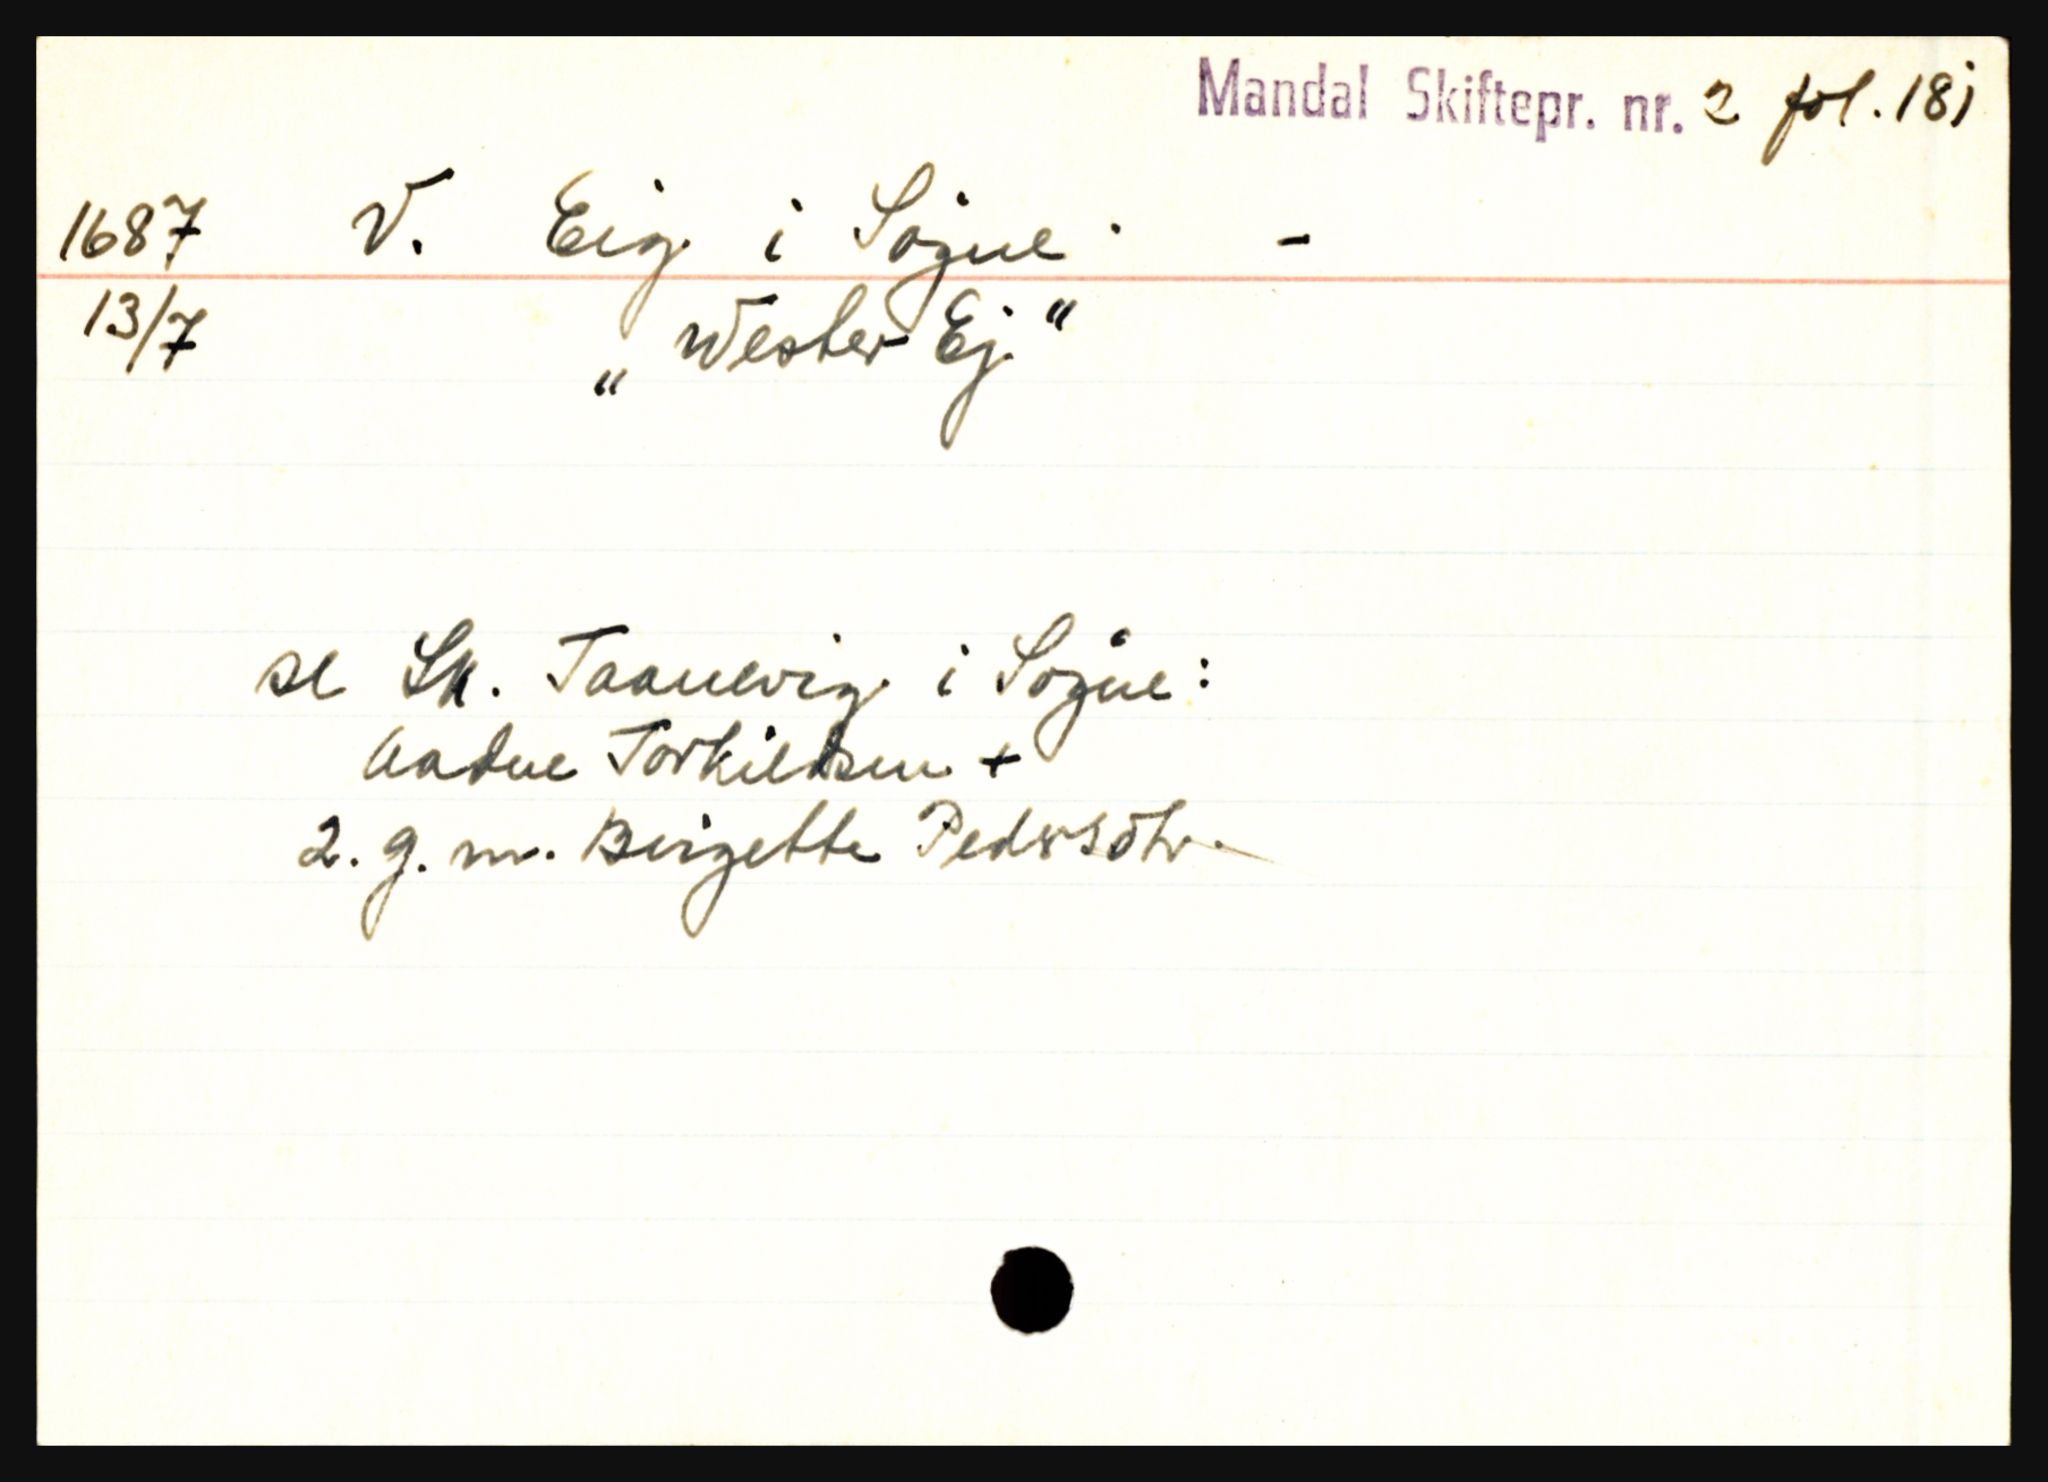 Mandal Skiftepr. nr. 2 fol. 18j
1687 V. Eig i Søgne -
13/7 „Wester Ej.“
se Sk. Taanevig i Søgne:
Aadne Torkildsen +
2. g. m. Birgette Pedersdtr.